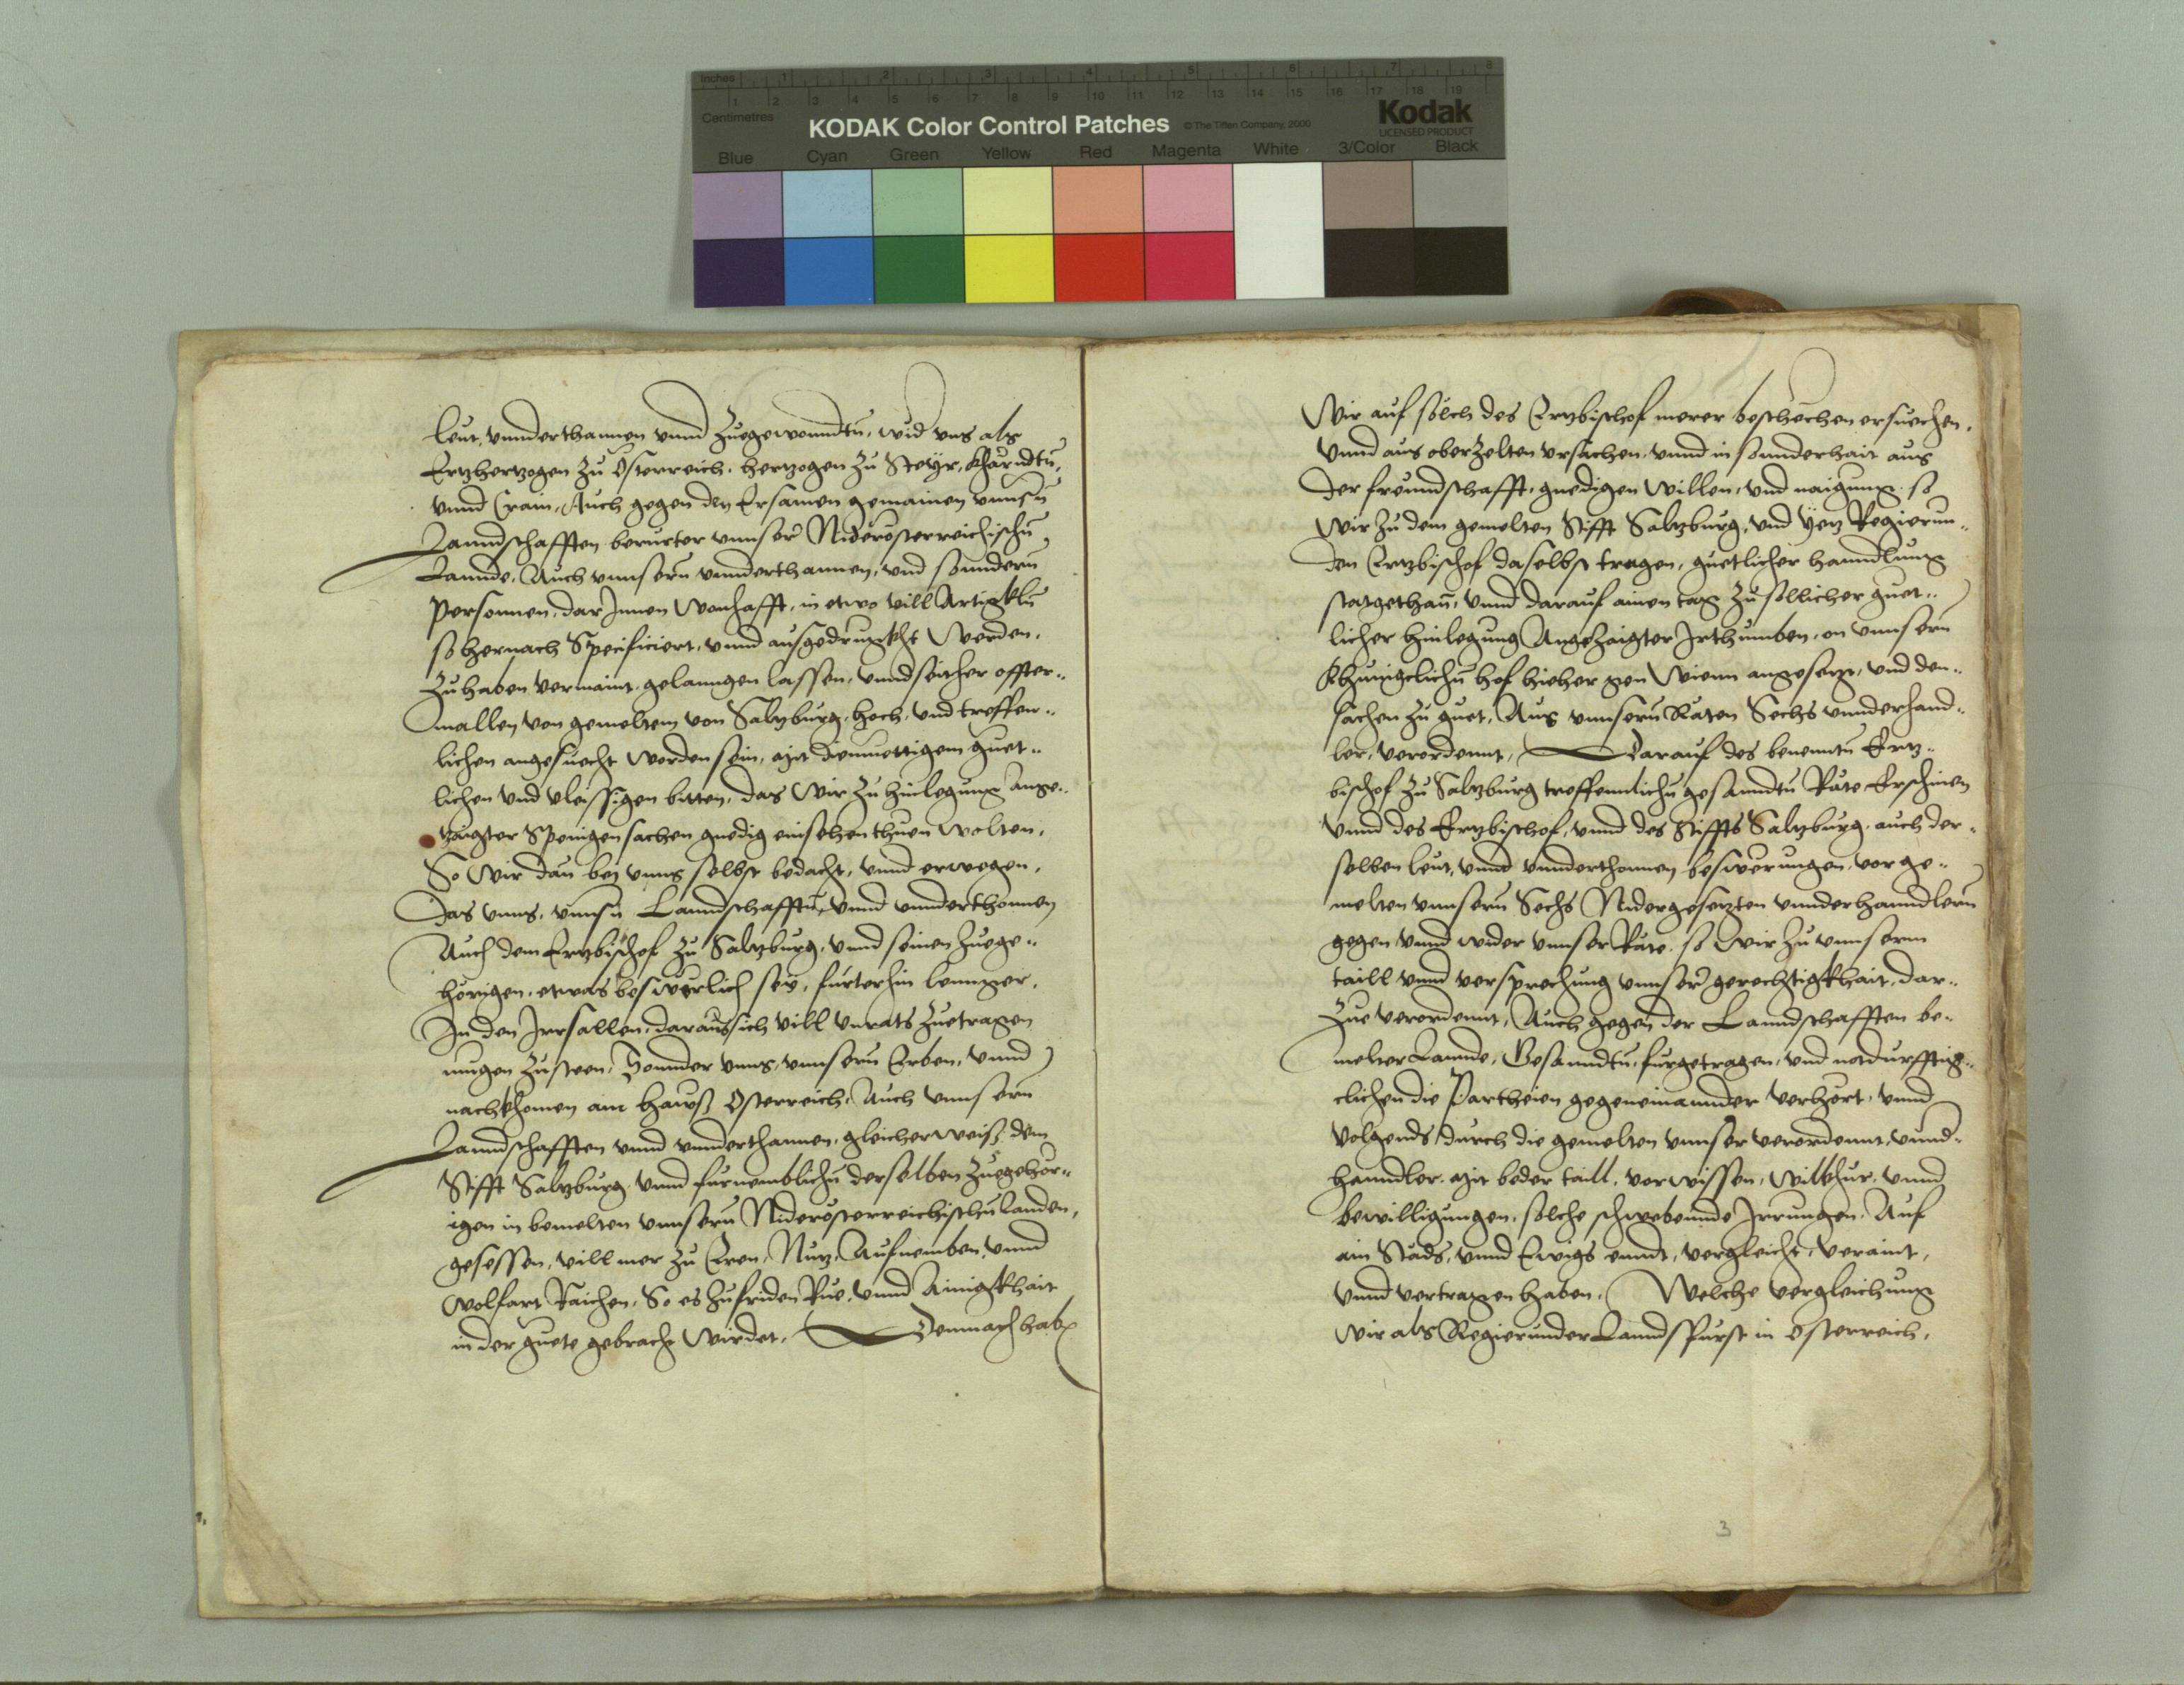 Inches 1 2 3 4 5 6 7 8
1 2 3 4 5 6 7 8 9 10 11 12 13 14 15 16 17 18 19
Centimetres
KODAK Color Control Patches © The Tiffen Company, 2000 Kodak
LICENSED PRODUCT
Blue Cyan Green Yellow Red Magenta White 3/Color Black
leut, vnnderthannen vnnd Zuegewonndtn, wid vns als
Ertzhertzogen zu Österreich, hertzogen zu Steÿr, Kharndtn,
vnnd Crain, Auch gegen den Ersamen gemainen vnnsn
Lanndschafften berurter vnnser Niderösterreichischn
Lannde, Auch vnnsern vnnderthannen, vnd sonndern
Personnen, dar Innen Wonhafft, in etwo vill Artigkln
so hernach Specificiert, vnnd ausgedrugkht Werden,
Zuhaben vermaint, gelanngen lassen, vnnd seither offter..
mallen von gemeltem von Saltzburg, hoch, vnd treffen..
lichen angesuecht Worden sein, mit diemuettigem guet..
lichen vnd vleissigen bitten, das Wir zu hinlegung ange..
zaigter Spenigen sachen gnedig einsehen thuen Wolten,
So Wir dan beÿ vnns selbst bedacht, vnnd erwegen,
Das vnns, vnnsn Lanndschafftn, vnnd vnnderthonnen
Auch dem Ertzbischof zu Saltzburg, vnnd seinen Zuege..
hörigen, etwas beswerlich seÿ, furterhin lennger,
In den Irrsallen, daraus sich vill vnrats Zuetragen
mugen Zusteen, Sonnder vnns, vnnsern Erben, vnnd
nachkhomen am hawß Österreich, Auch vnnsern
Lanndschafften vnnd vnnderthannen, gleicherweiß dem
Stifft Saltzburg vnnd furnemblichn derselben Zuegehör..
igen in bemelten vnnsern Niderösterreichischn landen,
gesessen, vill mer zu Eren, Nutz, Aufnemben, vnnd
Wolfart Raichen, So es zu friden Rue, vnnd Ainigkhait
in der guete gebracht Wirdet, Demnach haben
Wir auf solch des Ertzbischof merer beschechen ersuechen,
Vnnd aus oberzelten vrsachen, vnnd in sonnderhait aus
der freundschafft, gnedigen Willen, vnd naigung, so
Wir zu dem gemelten Stifft Saltzburg, vnd ÿetz Regierun..
den Ertzbischof daselbst tragen, guetlicher hanndlung
statgethan, vnnd darauf ainen tag zu söllicher guet..
licher hinlegung Angezaigter Irthumben, an vnnsern
Khunigclichn hof hieher gen Wienn angesetzt, vnd den..
sachen zu guet, Aus vnnsern Räten Sechs vnnderhand..
ler, verordennt, Darauf des benenntn Ertz..
bischof zu Saltzburg treffennlichn gesanndtn Räte Erschinen
Vnnd des Ertzbischof, vnnd des Stiffts Saltzburg, auch der..
selben leut, vnnd vnnderthonnen beswerungen, vor ge..
melten vnnsern Sechs Nidergesetzten vnnderhanndlern
gegen vnnd wider vnnser Räte, so Wir zu vnnserm
taill vnnd versprechung vnnser gerechtigkhait, dar..
Zue verordennt, Auch gegen der Lanndschafften be..
melter Lannde, Gesanndtn, furgetragen, vnd notdurfftig..
clichen die Partheien gegeneinannder verhört, vnnd
Volgends durch die gemelten vnnser verordennt, vnnd..
hanndler, mit beder taill, vorwissen, Wilkhur, vnnd
bewilligungen, solche schwebennde Irrungen, Auf
ain Städs, vnnd Ewigs ennd, vergleicht, veraint,
vnnd vertragen haben, Welche vergleichung
Wir als Regierunder Lanndsfürst in Österreich,
3